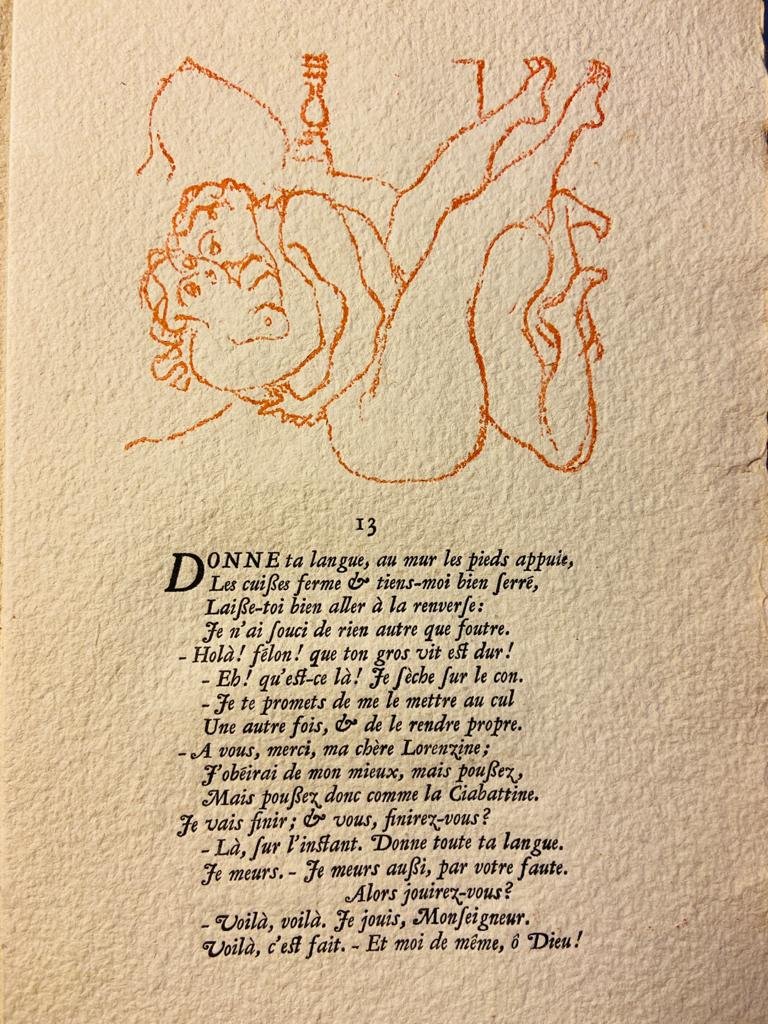 13
DONNE ta langue, au mur les pieds appuie,
Les cuißes ferme & tiens-moi bien ſerré,
Laiße-toi bien aller à la renverſe:
Je n'ai ſouci de rien autre que foutre.
- Holà! félon! que ton gros vit est dur!
- Eh! qu'est-ce là! Je ſèche ſur le con.
- Je te promets de me le mettre au cul
Une autre fois, & de le rendre propre.
- A vous, merci, ma chère Lorenzine;
J'obéirai de mon mieux, mais poußez,
Mais poußez donc comme la Ciabattine.
Je vais finir; & vous, finirez-vous?
- Là, ſur l'inſtant. Donne toute ta langue.
Je meurs. - Je meurs außi, par votre faute.
Alors jouirez-vous?
- Voilà, voilà. Je jouis, Monſeigneur.
Voilà, c'est fait. - Et moi de même, ô Dieu!